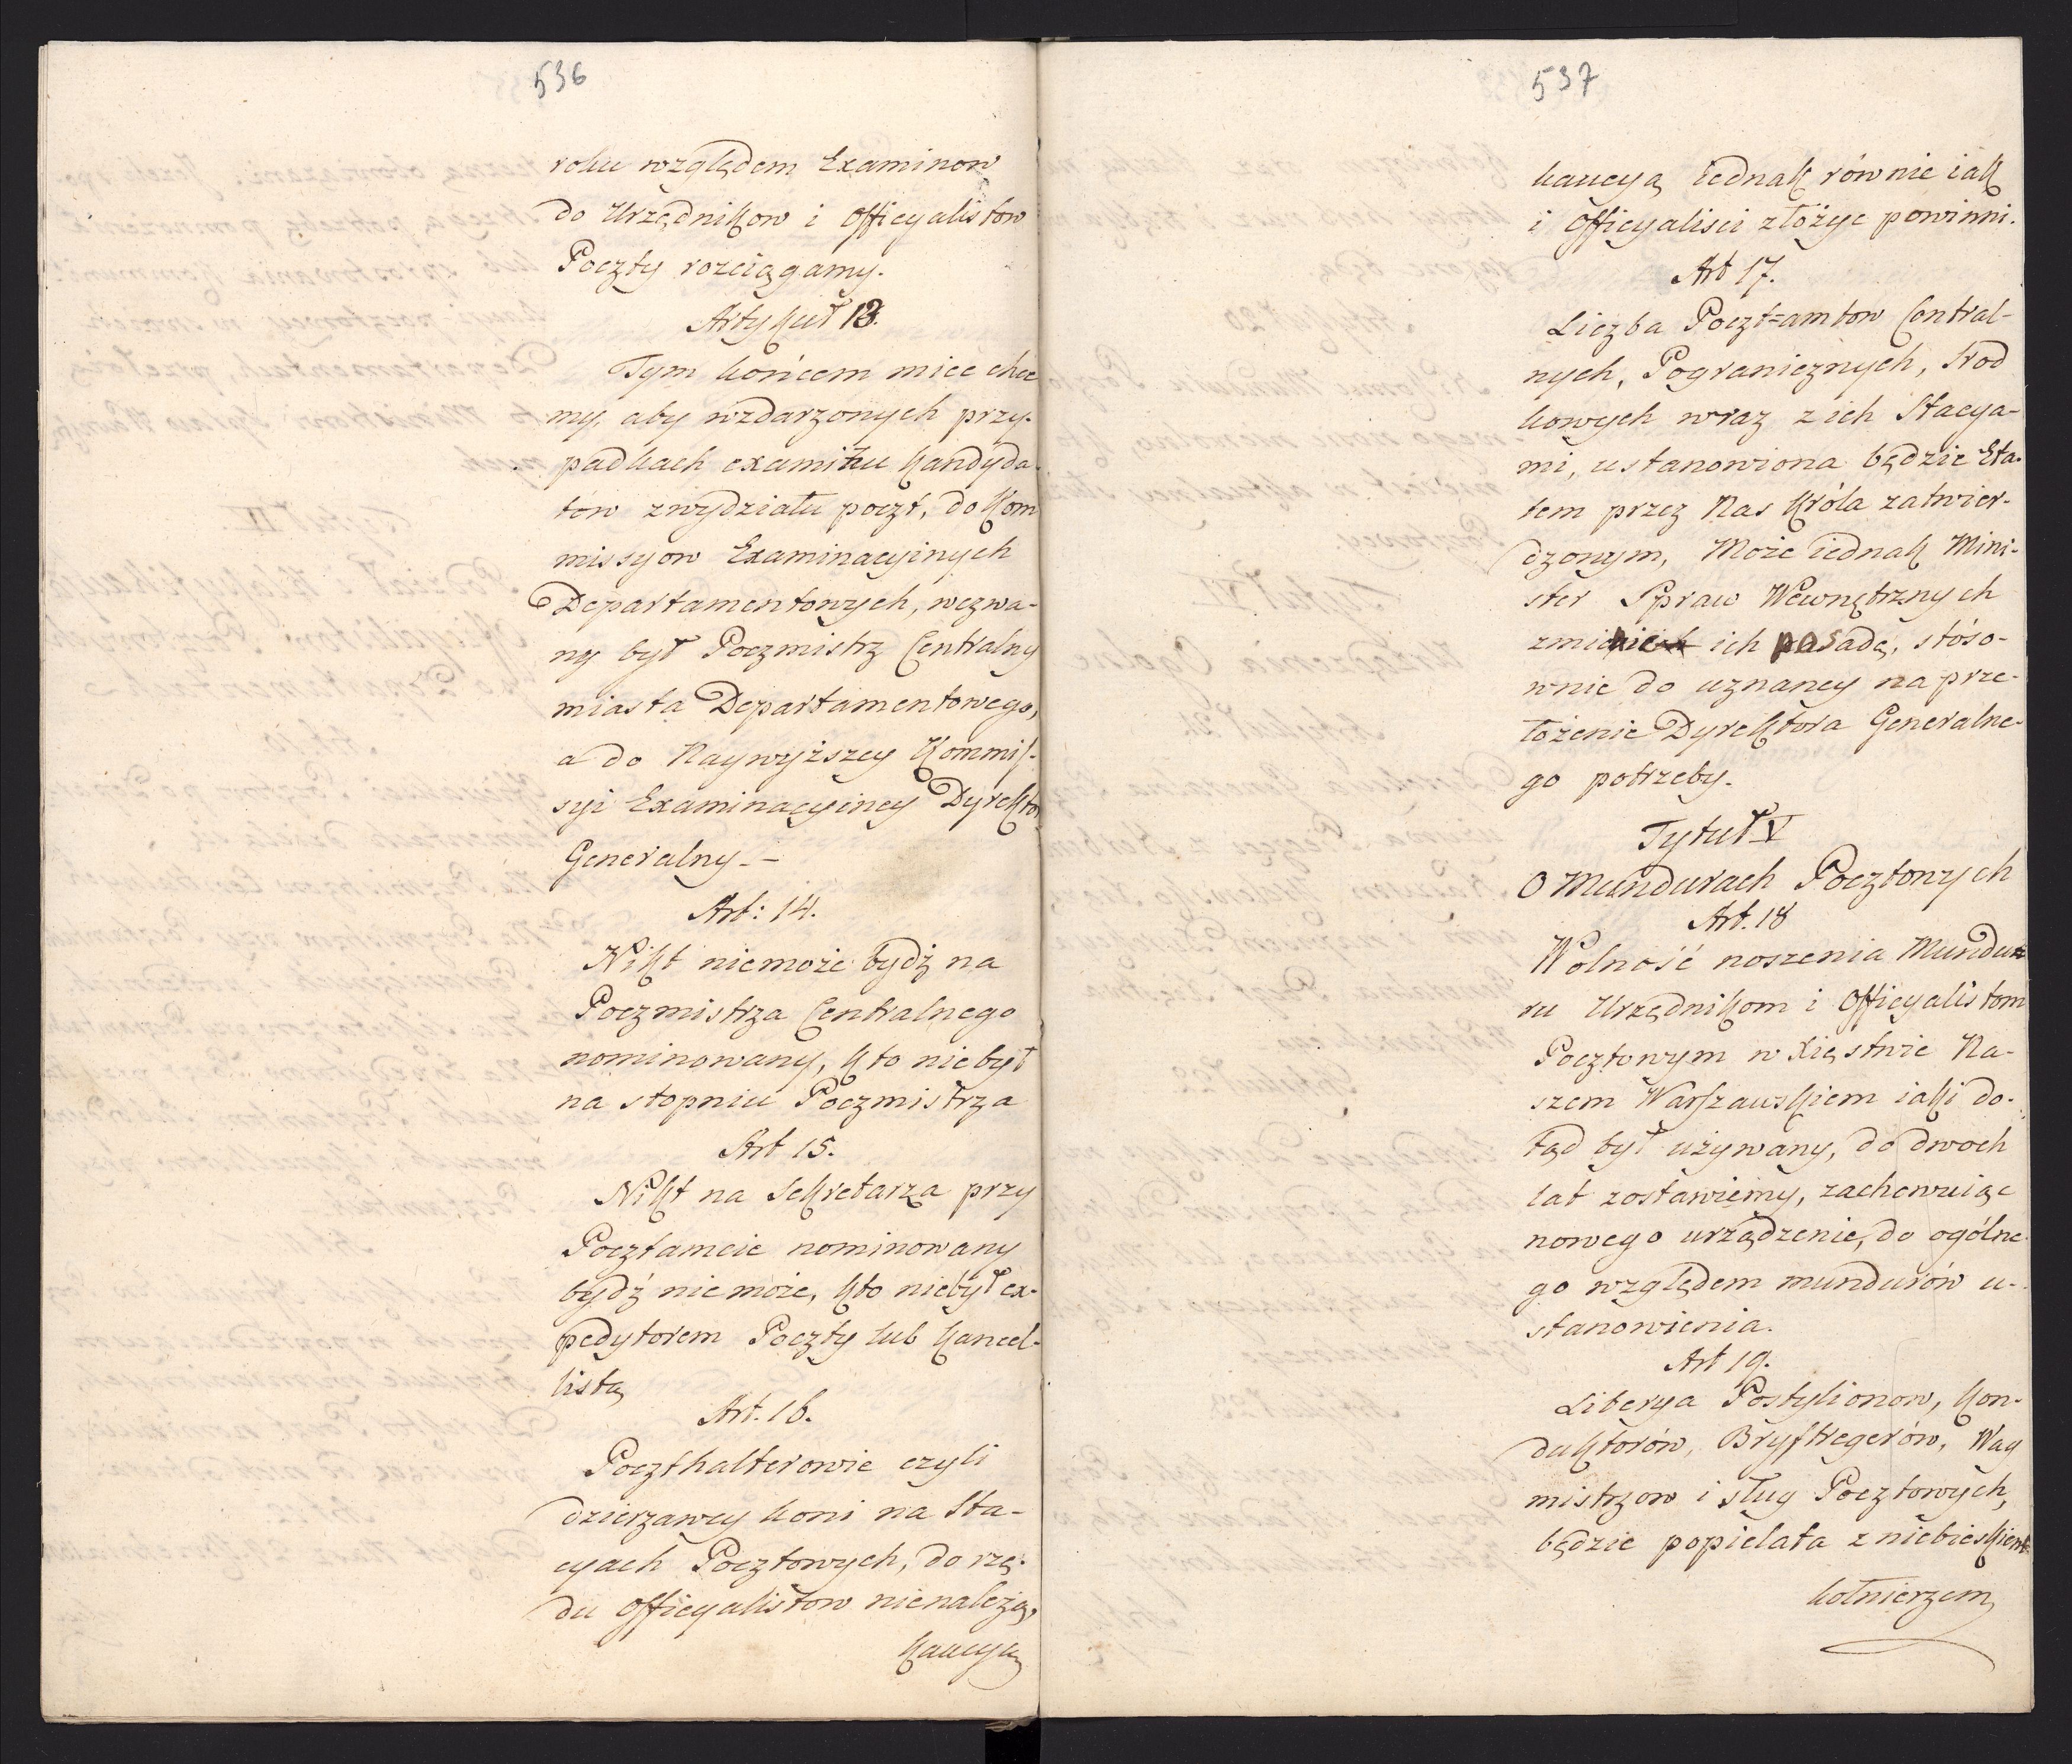 536
roku względem Examinow
do Urzędnikow i Officyalistow
Poczty rozciągamy.
Artykuł 13.
Tym końcem miec chce
my, aby wzdarzonych przy-
padkach examinu kandyda-
tów zwydziału poczt, do Kom
missyow Examinacyinych
Departamentowych, wezwa-
ny był Poczmistrz Centralny
miasta Departamentowego,
a do Naywyższey Kommis-
syi Examinacyiney Dyrektor
Generalny.–
Art: 14.
Nikt niemoże bydź na
Poczmistrza Centralnego
nominowany, kto niebył
na stopniu Poczmistrza
Art 15.
Nikt na Sekretarza przy
Pocztamcie nominowany
bydź niemoże, kto niebył ex-
pedytorem Poczty lub kancel-
listą
Art. 16.
Poczthalterowie czyli
dzierzawcy koni na Sta-
cyach Pocztowych, do rzę-
du officyalistow nienależą,
kaucyą
537
kaucyą iednak równie iak
i Officyalisci złożyc powinni.
Art 17.
Liczba Poczt=amtow Central-
nych, Pogranicznych, Srod
kowych wraz z ich Stacya-
mi, ustanowiona będzie Eta-
tem przez Nas Króla zatwier-
dzonym, Może iednak Mini-
ster Spraw Wewnętrznych
ich posadę, stóso-
wnie do uznaney na prze-
łożenie Dyrektora Generalne-
go potrzeby.
Tytuł V
O Mundurach Pocztowych
Art. 18
Wolność noszenia Mundu
ru Urzędnikom i Officyalistom
Pocztowym w Xięstwie Na-
szem Warszawskiem iaki do-
tąd był używany, do dwoch
lat zostawiemy, zachowuiąc
nowego urządzenie, do ogólne
go względem mundurów u-
stanowienia.
Art 19.
Liberya Postylionow, kon-
duktorów, Bryftregerów, Wag
mistrzow i sług Pocztowych,
będzie popielata z niebieskiem
kołnierzem